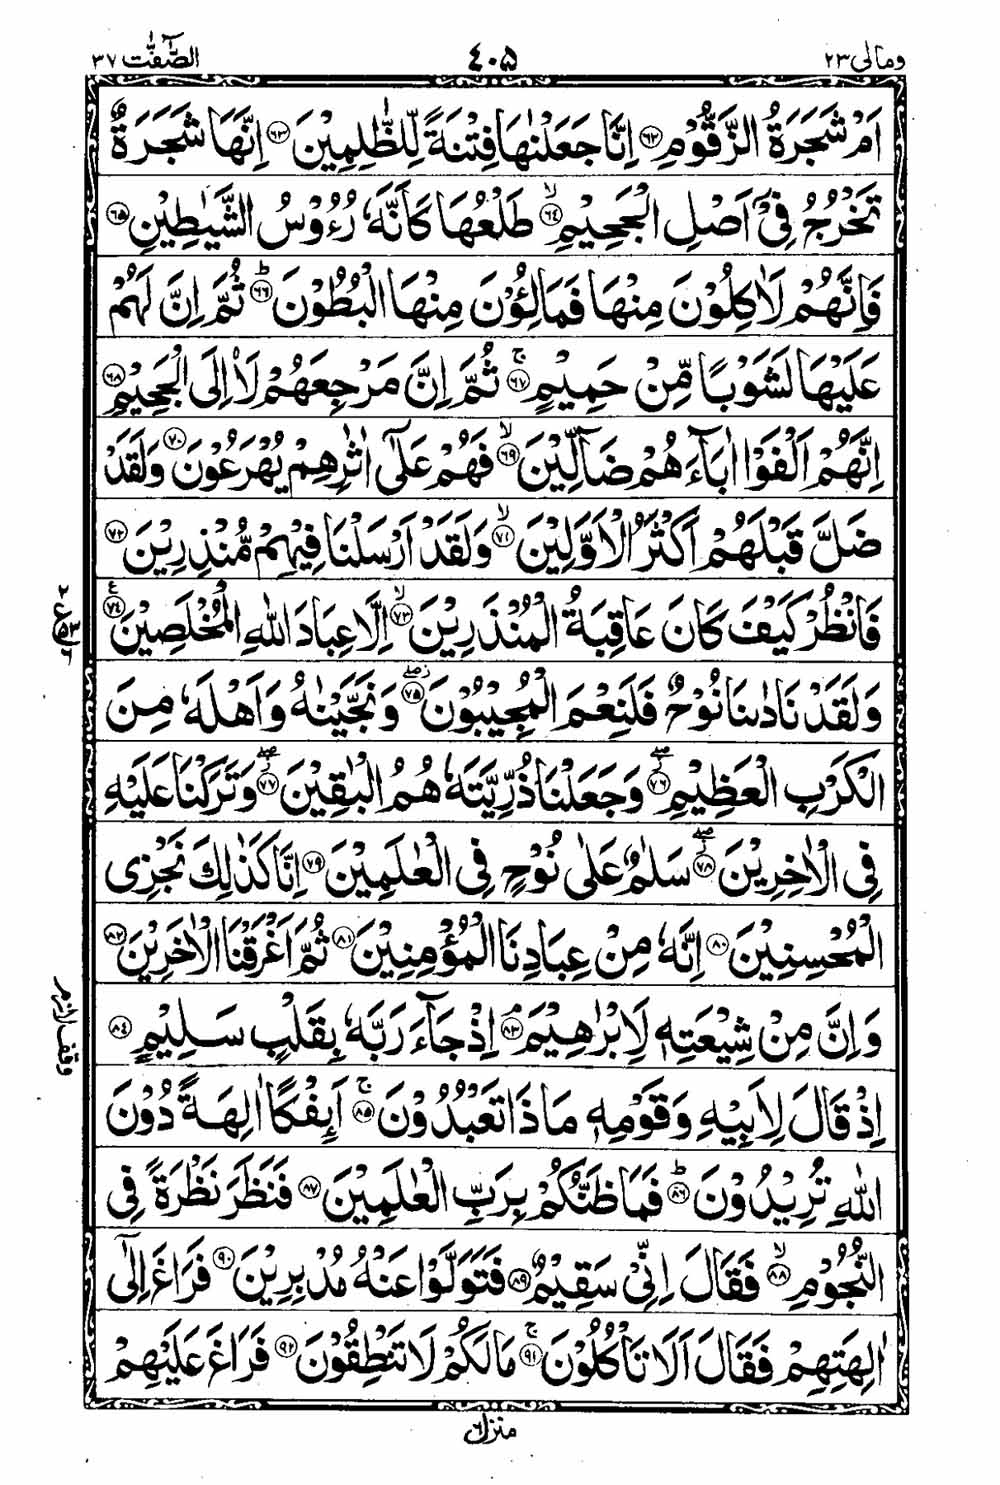 وما لی ۲۳ ۴۰۵ الصّٰٓفّٰت ۳۷
اَمْ شَجَرَةُ الزَّقُّوْمِ ﴿۶۲﴾ اِنَّا جَعَلْنٰهَا فِتْنَةً لِّلظّٰلِمِيْنَ ﴿۶۳﴾ اِنَّهَا شَجَرَةٌ
تَخْرُجُ فِيْۤ اَصْلِ الْجَحِيْمِ ۙ﴿۶۴﴾ طَلْعُهَا كَاَنَّهٗ رُءُوْسُ الشَّيٰطِيْنِ ﴿۶۵﴾
فَاِنَّهُمْ لَاٰكِلُوْنَ مِنْهَا فَمَالِـُٔوْنَ مِنْهَا الْبُطُوْنَ ؕ﴿۶۶﴾ ثُمَّ اِنَّ لَهُمْ
عَلَيْهَا لَشَوْبًا مِّنْ حَمِيْمٍ ۚ﴿۶۷﴾ ثُمَّ اِنَّ مَرْجِعَهُمْ لَا۠اِلَى الْجَحِيْمِ ﴿۶۸﴾
اِنَّهُمْ اَلْفَوْا اٰبَآءَهُمْ ضَآلِّيْنَ ۙ﴿۶۹﴾ فَهُمْ عَلٰۤى اٰثٰرِهِمْ يُهْرَعُوْنَ ﴿۷۰﴾ وَلَقَدْ
ضَلَّ قَبْلَهُمْ اَكْثَرُ الْاَوَّلِيْنَ ۙ﴿۷۱﴾ وَلَقَدْ اَرْسَلْنَا فِيْهِمْ مُّنْذِرِيْنَ ﴿۷۲﴾
فَانْظُرْ كَيْفَ كَانَ عَاقِبَةُ الْمُنْذَرِيْنَ ۙ﴿۷۳﴾ اِلَّا عِبَادَ اللّٰهِ الْمُخْلَصِيْنَ ﴿۷۴﴾ ع
وَلَقَدْ نَادٰىنَا نُوْحٌ فَلَنِعْمَ الْمُجِيْبُوْنَ ﴿۷۵﴾ وَنَجَّيْنٰهُ وَاَهْلَهٗ مِنَ
الْكَرْبِ الْعَظِيْمِ ﴿۷۶﴾ وَجَعَلْنَا ذُرِّيَّتَهٗ هُمُ الْبٰقِيْنَ ﴿۷۷﴾ وَتَرَكْنَا عَلَيْهِ
فِى الْاٰخِرِيْنَ ﴿۷۸﴾ سَلٰمٌ عَلٰى نُوْحٍ فِى الْعٰلَمِيْنَ ﴿۷۹﴾ اِنَّا كَذٰلِكَ نَجْزِى
الْمُحْسِنِيْنَ ﴿۸۰﴾ اِنَّهٗ مِنْ عِبَادِنَا الْمُؤْمِنِيْنَ ﴿۸۱﴾ ثُمَّ اَغْرَقْنَا الْاٰخَرِيْنَ ﴿۸۲﴾
وَاِنَّ مِنْ شِيْعَتِهٖ لَاِبْرٰهِيْمَ ۘ﴿۸۳﴾ اِذْ جَآءَ رَبَّهٗ بِقَلْبٍ سَلِيْمٍ ﴿۸۴﴾
وقف لازم
اِذْ قَالَ لِاَبِيْهِ وَقَوْمِهٖ مَاذَا تَعْبُدُوْنَ ۚ﴿۸۵﴾ اَئِفْكًا اٰلِهَةً دُوْنَ
اللّٰهِ تُرِيْدُوْنَ ؕ﴿۸۶﴾ فَمَا ظَنُّكُمْ بِرَبِّ الْعٰلَمِيْنَ ﴿۸۷﴾ فَنَظَرَ نَظْرَةً فِى
النُّجُوْمِ ۙ﴿۸۸﴾ فَقَالَ اِنِّيْ سَقِيْمٌ ﴿۸۹﴾ فَتَوَلَّوْا عَنْهُ مُدْبِرِيْنَ ﴿۹۰﴾ فَرَاغَ اِلٰۤى
اٰلِهَتِهِمْ فَقَالَ اَلَا تَاْكُلُوْنَ ۚ﴿۹۱﴾ مَا لَكُمْ لَا تَنْطِقُوْنَ ﴿۹۲﴾ فَرَاغَ عَلَيْهِمْ
منزل ۶